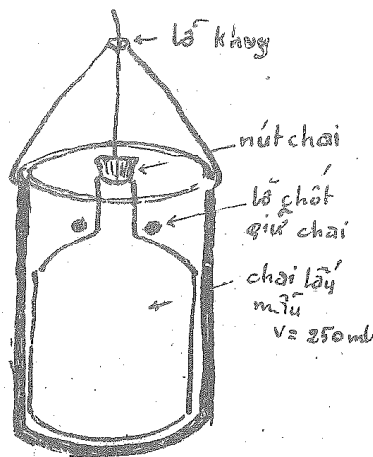 lỗ khuy
nút chai
lỗ chốt
giữ chai
chai lấy
mẫu
V = 250 ml